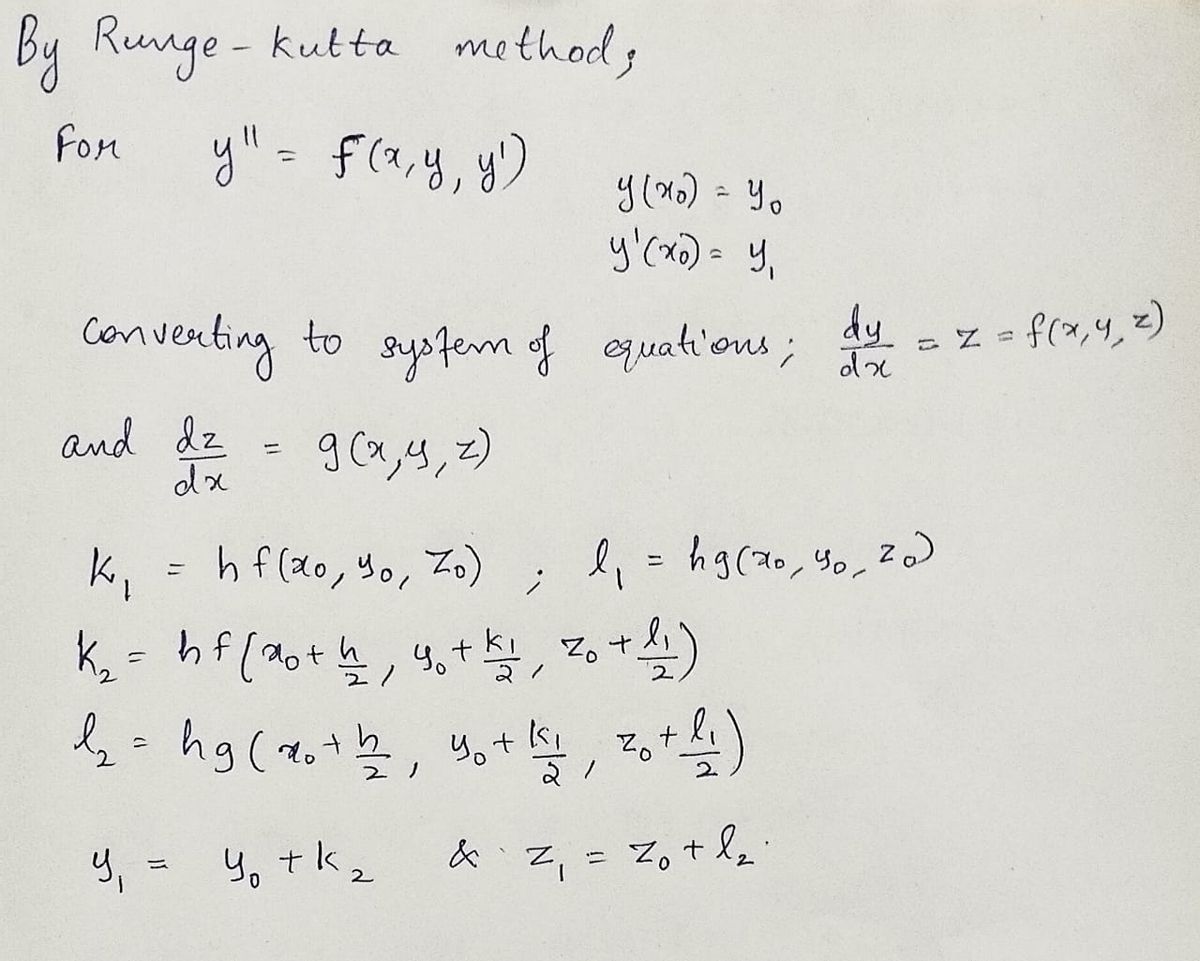 By Runge - kutta method;
For y'' = f(x, y, y')
y(x₀) = y₀
y'(x₀) = y₁
Converting to system of equations; dy/dx = z = f(x, y, z)
and dz/dx = g(x, y, z)
k₁ = h f(x₀, y₀, z₀) ; l₁ = hg(x₀, y₀, z₀)
k₂ = hf(x₀ + h/2, y₀ + k₁/2, z₀ + l₁/2)
l₂ = hg(x₀ + h/2, y₀ + k₁/2, z₀ + l₁/2)
y₁ = y₀ + k₂ & z₁ = z₀ + l₂.